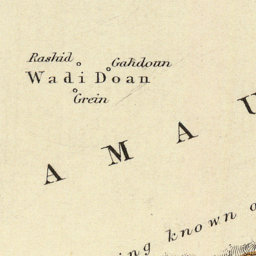 Rashid
Gahdoun
Wadi Doan
Grein
A M A U
ing known o